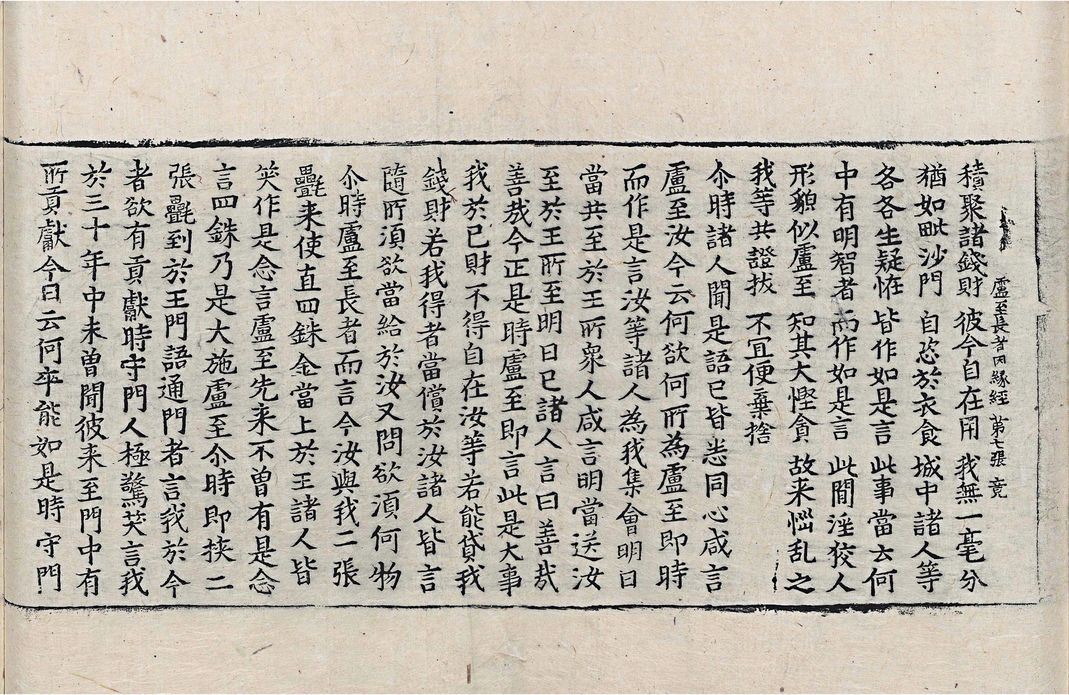 盧至長者因縁經 第七張 竟
積聚諸錢財 彼今自在用 我無一毫分
猶如毗沙門 自恣於衣食 城中諸人等
各各生疑恠 皆作如是言 此事當云何
中有明智者 而作如是言 此間淫狡人
形貌似盧至 知其大慳貪 故来惱乱之
我等共證拔 不冝便棄捨
尒時諸人聞是語已皆悉同心咸言
盧至汝今云何欲何所為盧至即時
而作是言汝等諸人為我集會明日
當共至於王所衆人咸言明當送汝
至於王所至明日已諸人言曰善哉
善哉今正是時盧至即言此是大事
我於已財不得自在汝等若能貸我
錢財若我得者當償於汝諸人皆言
隨所須欲當給於汝又問欲湏何物
尒時盧至長者而言今汝與我二張
㲲来使直四銖金當上於王諸人皆
笑作是念言盧至先来不曾有是念
言四銖乃是大施盧至尒時即挾二
張㲲到於王門語通門者言我於今
者欲有貢獻時守門人極驚笑言我
於三十年中未曾聞彼来至門中有
所貢獻今日云何卒能如是時守門